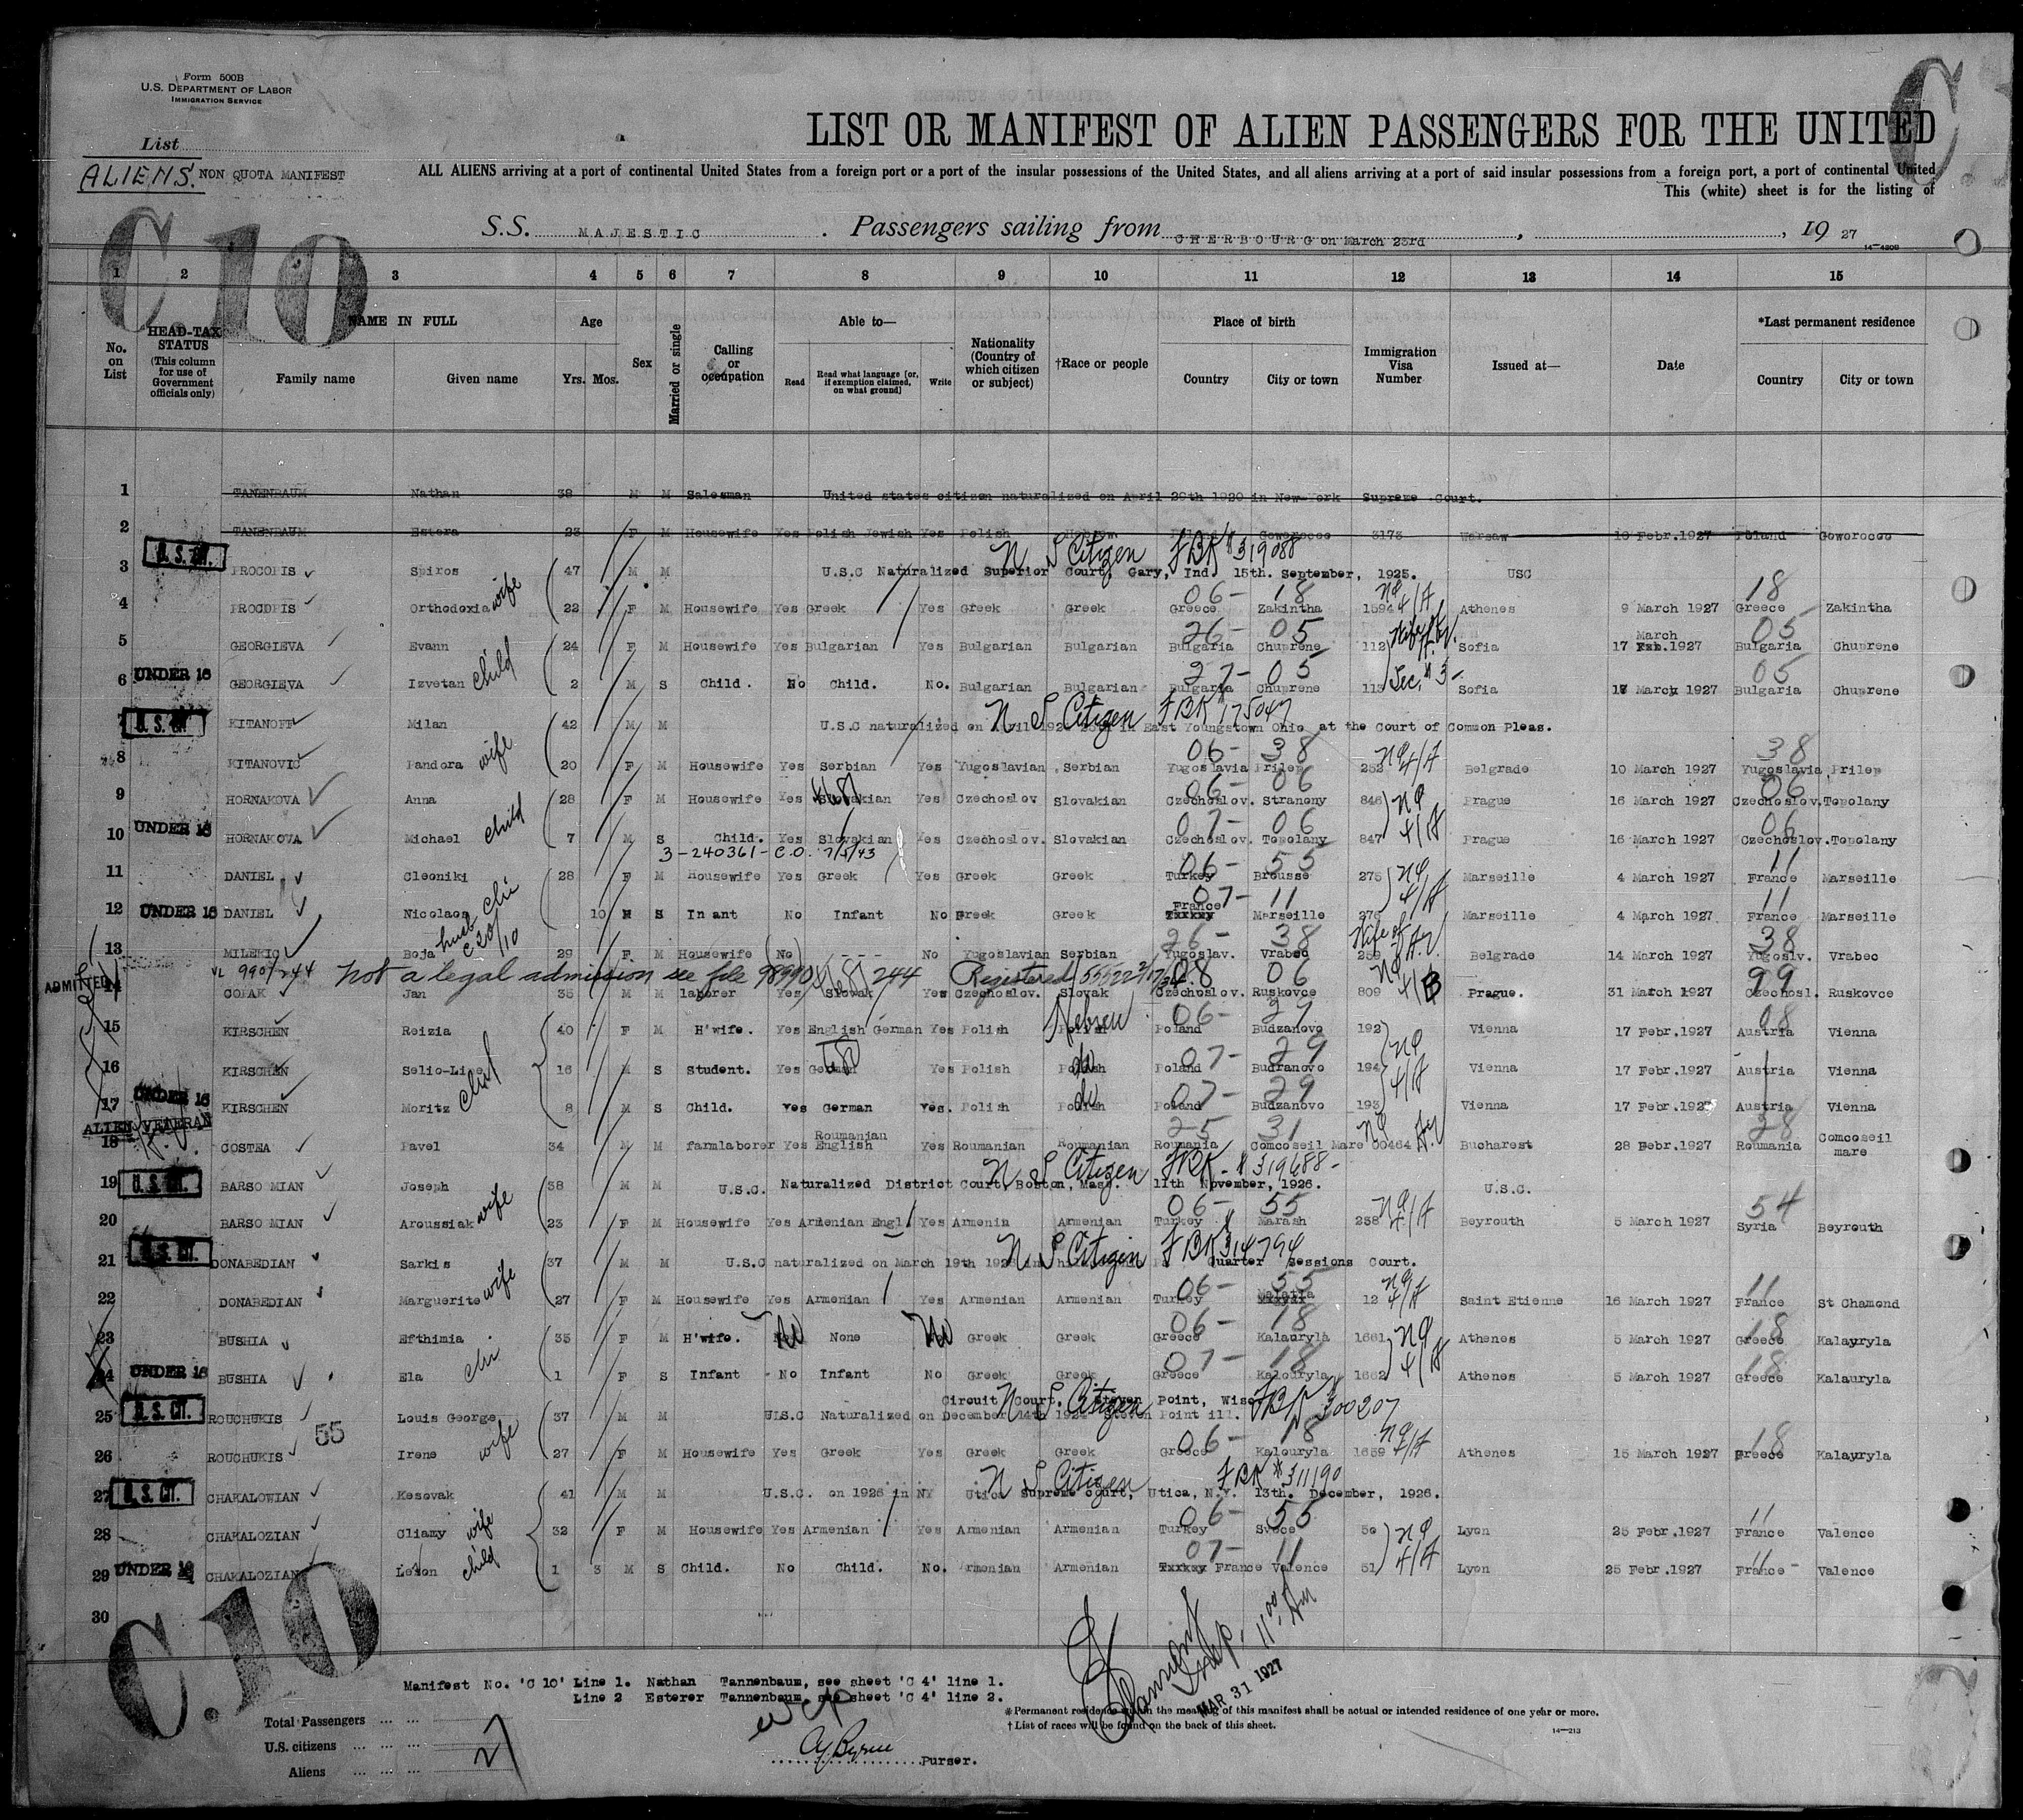 Form 500B
U.S. DEPARTMENT OF LABOR
IMMIGRATION SERVICE
C
LIST OR MANIFEST OF ALIEN PASSENGERS FOR THE UNITED
List
ALIENS. NON QUOTA MANIFEST
ALL ALIENS arriving at a port of continental United States from a foreign port or a port of the insular possessions of the United States, and all aliens arriving at a port of said insular possessions from a foreign port, a port of continental United
This (white) sheet is for the listing of
C.10
S.S. MAJESTIC . Passengers sailing from CHERBOURG on March 23rd , , 19 27
14-4208
1 2 3 4 5 6 7 8 9 10 11 12 13 14 15
No. on List
HEAD-TAX STATUS (This column for use of Government officials only)
NAME IN FULL Family name Given name
Age Yrs. Mos.
Sex
Married or single
Calling or occupation
Able to— Read Read what language [or, if exemption claimed, on what ground] Write
Nationality (Country of which citizen or subject)
†Race or people
Place of birth Country City or town
Immigration Visa Number
Issued at—
Date
*Last permanent residence Country City or town
1 TANENBAUM Nathan 38 M M Salesman United states citizen naturalized on April 29th 1920 in New-York Supreme Court.
2 TANENBAUM Estera 23 F M Housewife Yes Polish Jewish Yes Polish Hebrew Poland Goworocoo 3173 Warsaw 10 Febr.1927 Poland Goworocoo
U.S. CIT. N S Citizen FBK # 319088
3 PROCOPIS Spiros 47 M M U.S.C Naturalized Superior Court, Gary, Ind. 15th. September, 1925. USC
wife 06- 18 NQ 4/A 18
4 PROCOPIS Orthodoxia 22 F M Housewife Yes Greek Yes Greek Greek Greece Zakintha 1594 Athenes 9 March 1927 Greece Zakintha
26- 05 Wife of 05
5 GEORGIEVA Evann 24 F M Housewife Yes Bulgarian Yes Bulgarian Bulgarian Bulgaria Chuprene 112 Sofia 17 March 1927 Bulgaria Chuprene
UNDER 16 child 27- 05 Sec. # 3- 05
6 GEORGIEVA Izvetan 2 M S Child. No Child. No. Bulgarian Bulgarian Bulgaria Chuprene 113 Sofia 17 March 1927 Bulgaria Chuprene
U.S. CIT N S Citizen FBK # 175047
7 KITANOFF Milan 42 M M U.S.C naturalized on in East Youngstown Ohio at the Court of Common Pleas.
wife 06- 38 NQ 4/A 38
8 KITANOVIC Pandora 20 F M Housewife Yes Serbian Yes Yugoslavian Serbian Yugoslavia Prilep 252 Belgrade 10 March 1927 Yugoslavia Prilep
06- 06 NQ 06
9 HORNAKOVA Anna 28 F M Housewife Yes Slovakian Yes Czechoslov Slovakian Czechoslov. Stranony 846 Prague 16 March 1927 Czechoslov. Topolany
UNDER 16 child 07- 06 4/A 06
10 HORNAKOVA Michael 7 M S Child. Yes Slovakian Yes Czechoslov. Slovakian Czechoslov. Topolany 847 Prague 16 March 1927 Czechoslov. Topolany
3-240361-C.O. 7/5/43
06- 55 NQ 11
11 DANIEL Cleoniki 28 F M Housewife Yes Greek Yes Greek Greek Turkey Brousse 275 Marseille 4 March 1927 France Marseille
UNDER 16 07- 11 4/A 11
12 DANIEL Nicolaos 10 M S In ant No Infant No Greek Greek France Marseille 276 Marseille 4 March 1927 France Marseille
26- 38 Wife of 38
13 MILEKIC Boja 29 F M Housewife No ---- No Yugoslavian Serbian Yugoslav. Vrabec 259 Belgrade 14 March 1927 Yugoslv. Vrabec
ADMITTED VL 990/244 not a legal admission see file 98990/244 Registered 08 06 NQ 4/B 99
14 COPAK Jan 35 M M laborer Yes Slovak Yes Czechoslov. Slovak Czechoslov. Ruskovce 809 Prague. 31 March 1927 Czechosl. Ruskovce
Hebrew 06- 29 08
15 KIRSCHEN Reizia 40 F M H'wife. Yes English German Yes Polish Polish Poland Budzanovo 192 Vienna 17 Febr.1927 Austria Vienna
do 07- 29 NQ 4/A
16 KIRSCHEN Selio-Lise 16 S Student. Yes German Yes Polish Polish Poland Budranovo 194 Vienna 17 Febr.1927 Austria Vienna
UNDER 16 child do 07- 29
17 KIRSCHEN Moritz 8 M S Child. Yes German Yes. Polish Polish Poland Budzanovo 193 Vienna 17 Febr.1927 Austria Vienna
ALIEN VETERAN 25 31 38
18 COSTEA Pavel 34 M M farmlaborer Yes Roumanian English Yes Roumanian Roumanian Roumania Comcoseil Mare 00464 Bucharest 28 Febr.1927 Roumania Comcoseil mare
U.S. CIT. N S Citizen FBK - # 319688-
19 BARSO MIAN Joseph 38 M M U.S.C. Naturalized District Court, Boston, Mass. 11th November, 1926. U.S.C.
wife 06- 55 NQ 4/A 54
20 BARSO MIAN Aroussiak 23 F M Housewife Yes Armenian Engl Yes Armenin Armenian Turkey Marash 238 Beyrouth 5 March 1927 Syria Beyrouth
U.S. CIT. N S Citizen FBK # 314794
21 DONABEDIAN Sarkis 37 M M U.S.C naturalized on March 19th Quarter Sessions Court.
wife 06- 55 NQ 4/A 11
22 DONABEDIAN Marguerite 27 F M Housewife Yes Armenian Yes Armenian Armenian Turkey Malatia 12 Saint Etienne 16 March 1927 France St Chamond
No No 06- 18 NQ 18
23 BUSHIA Efthimia 35 F M H'wife. None Greek Greek Greece Kalauryla 1661 Athenes 5 March 1927 Greece Kalauryla
UNDER 16 07- 18 4/A 18
24 BUSHIA Ela 1 F S Infant No Infant No Greek Greek Greece Kalouryla 1662 Athenes 5 March 1927 Greece Kalauryla
U.S. CIT. Circuit Court, Steven Point, Wisc. N S. Citizen FBK # 300207
25 ROUCHUKIS Louis George 37 M M U.S.C Naturalized on December 14th Steven Point ill.
55 wife 06- 18 NQ 4/A 18
26 ROUCHUKIS Irene 27 F M Housewife Yes Greek Yes Greek Greek Greece Kalouryla 1659 Athenes 15 March 1927 Greece Kalauryla
U.S. CIT. N S Citizen FBK # 311190
27 CHAKALOWIAN Kesovak 41 M M U.S.C. on 1926 in NY Utica Supreme Court, Utica, N.Y. 13th. December, 1926.
wife 06- 55 NQ 11
28 CHAKALOZIAN Cliamy 32 F M Housewife Yes Armenian Yes Armenian Armenian Turkey 50 Lyon 25 Febr.1927 France Valence
UNDER 16 child 07- 11 4/A 11
29 CHAKALOZIAN Levon 1 3 M S Child. No Child. No. rmenian Armenian France Valence 51 Lyon 25 Febr.1927 France Valence
30
C.10
Insp. 11:00 AM
MAR 31 1927
Manifest No. 'C 10' Line 1. Nathan Tannenbaum, see sheet 'C 4' line 1.
Line 2 Esterer Tannenbaum, see sheet 'C 4' line 2.
* Permanent residence within the meaning of this manifest shall be actual or intended residence of one year or more.
† List of races will be found on the back of this sheet.
14-213
Total Passengers
U.S. citizens
Aliens
27
Purser.